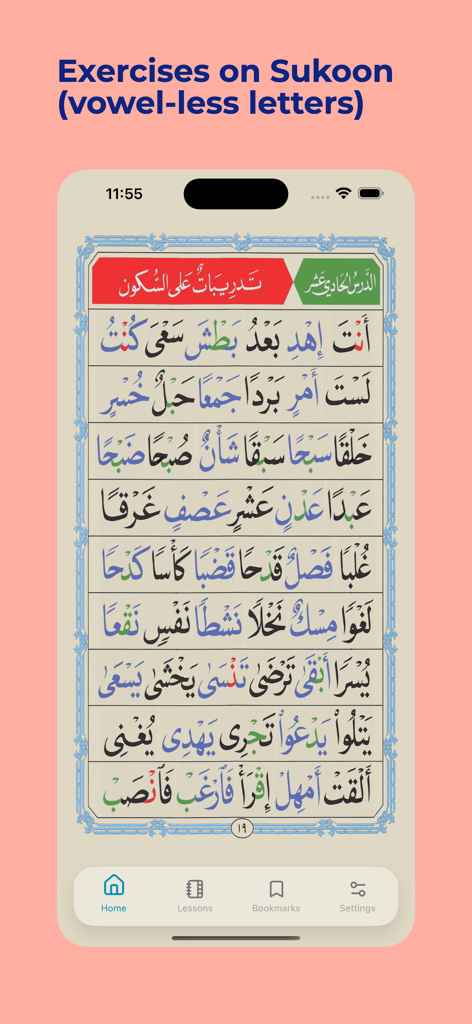 Exercises on Sukoon
(vowel-less letters)
11:55
الدَّرْسُ الحَادِي عَشَر
تَدرِيبَاتٌ عَلَى السُّكُون
أَنْتَ إِهْدِ بَعْدُ بَطْشَ سَعْىَ كُنْتُ
لَسْتَ أَمْرٍ بَرْدًا جَمْعًا حَبْلٌ خُسْرٍ
خَلْقًا سَبْحًا سَبْقًا شَأْنٌ صُبْحًا ضَبْحًا
عَبْدًا عَدْنٍ عَشْرٍ عَصْفٍ غَرْقًا
غُلْبًا فَصْلٌ قَدْحًا قَضْبًا كَأْسًا كَدْحًا
لَغْوًا مِسْكٌ نَخْلًا نَشْطًا نَفْسٍ نَقْعًا
يُسْرًا أَبْقَىٰ تَرْضَىٰ تَنْسَىٰ يَخْشَىٰ يَسْعَىٰ
يَتْلُوا۟ يَدْعُوا۟ تَجْرِى يَهْدِى يُغْنِى
أَلْقَتْ أَمْهِلْ إِقْرَأْ فَٱرْغَبْ فَٱنْصَبْ
١٩
Home
Lessons
Bookmarks
Settings